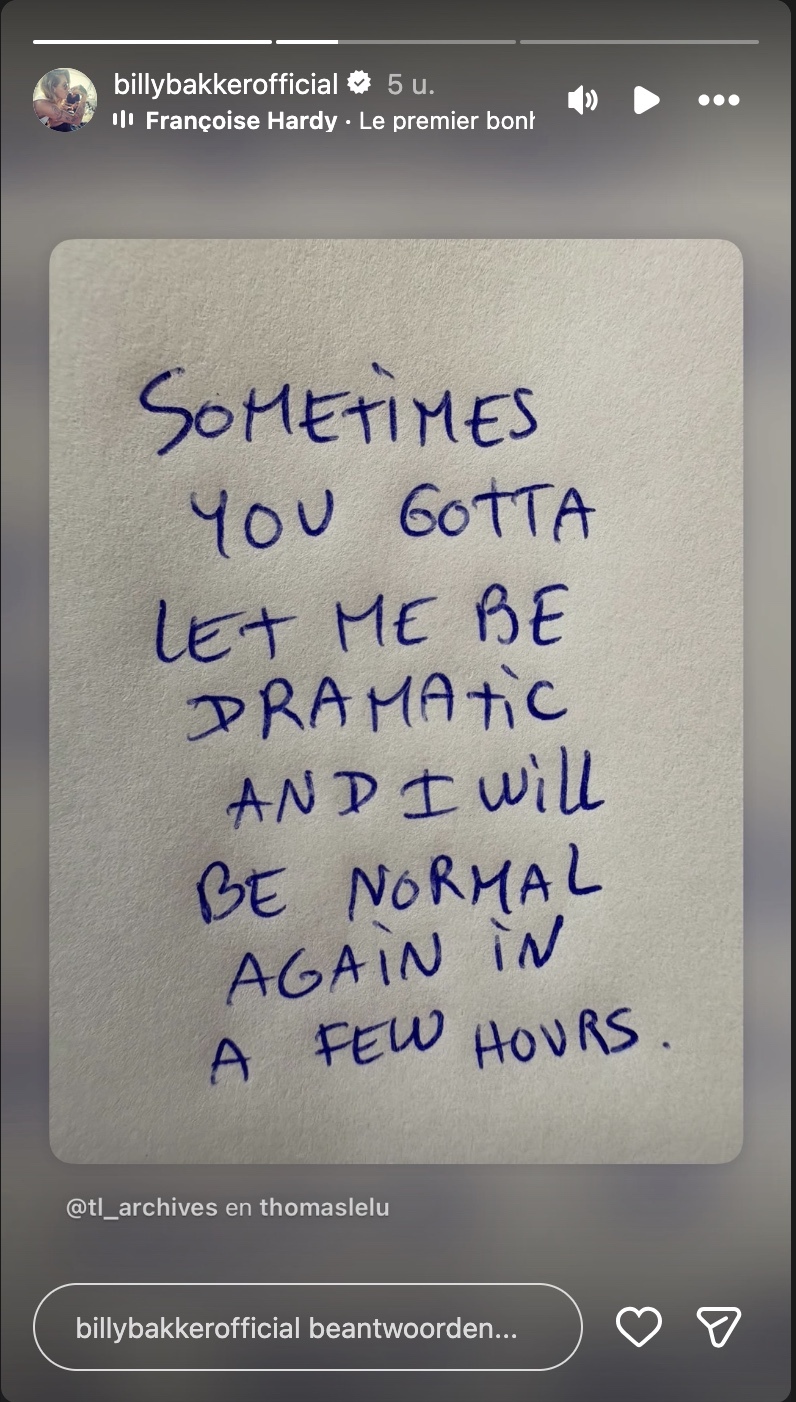 billybakkerofficial 5 u.
Françoise Hardy · Le premier bonh
SOMETIMES
YOU GOTTA
LET ME BE
DRAMATIC
AND I WILL
BE NORMAL
AGAIN IN
A FEW HOURS.
@tl_archives en thomaslelu
billybakkerofficial beantwoorden...